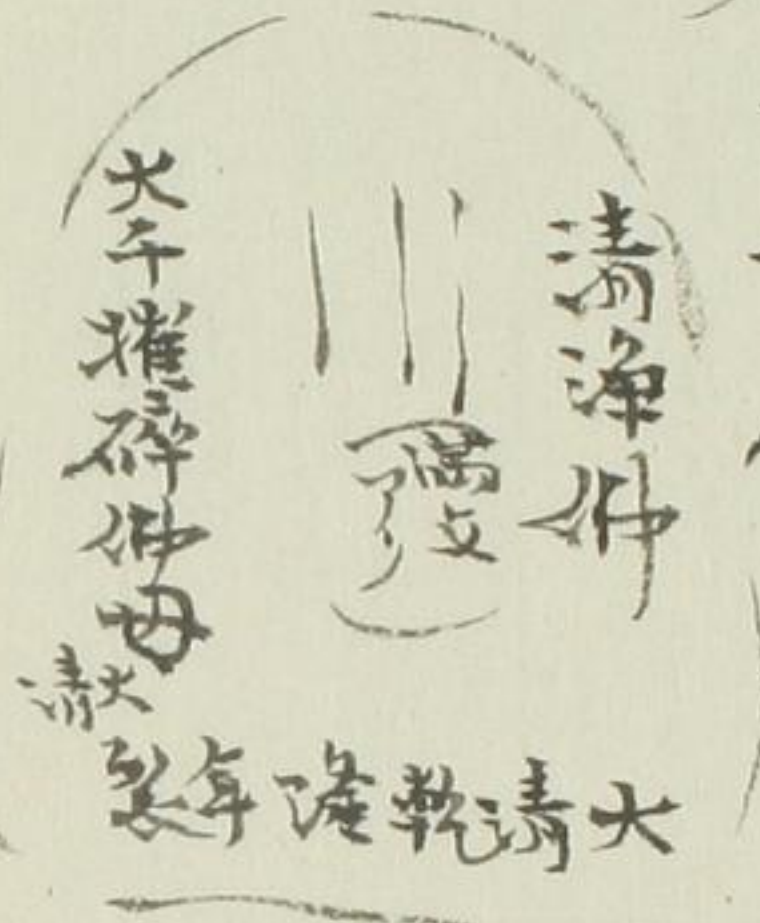 清浄佛
満文
アリ
大千摧碎佛母
大清
大清乾隆年製